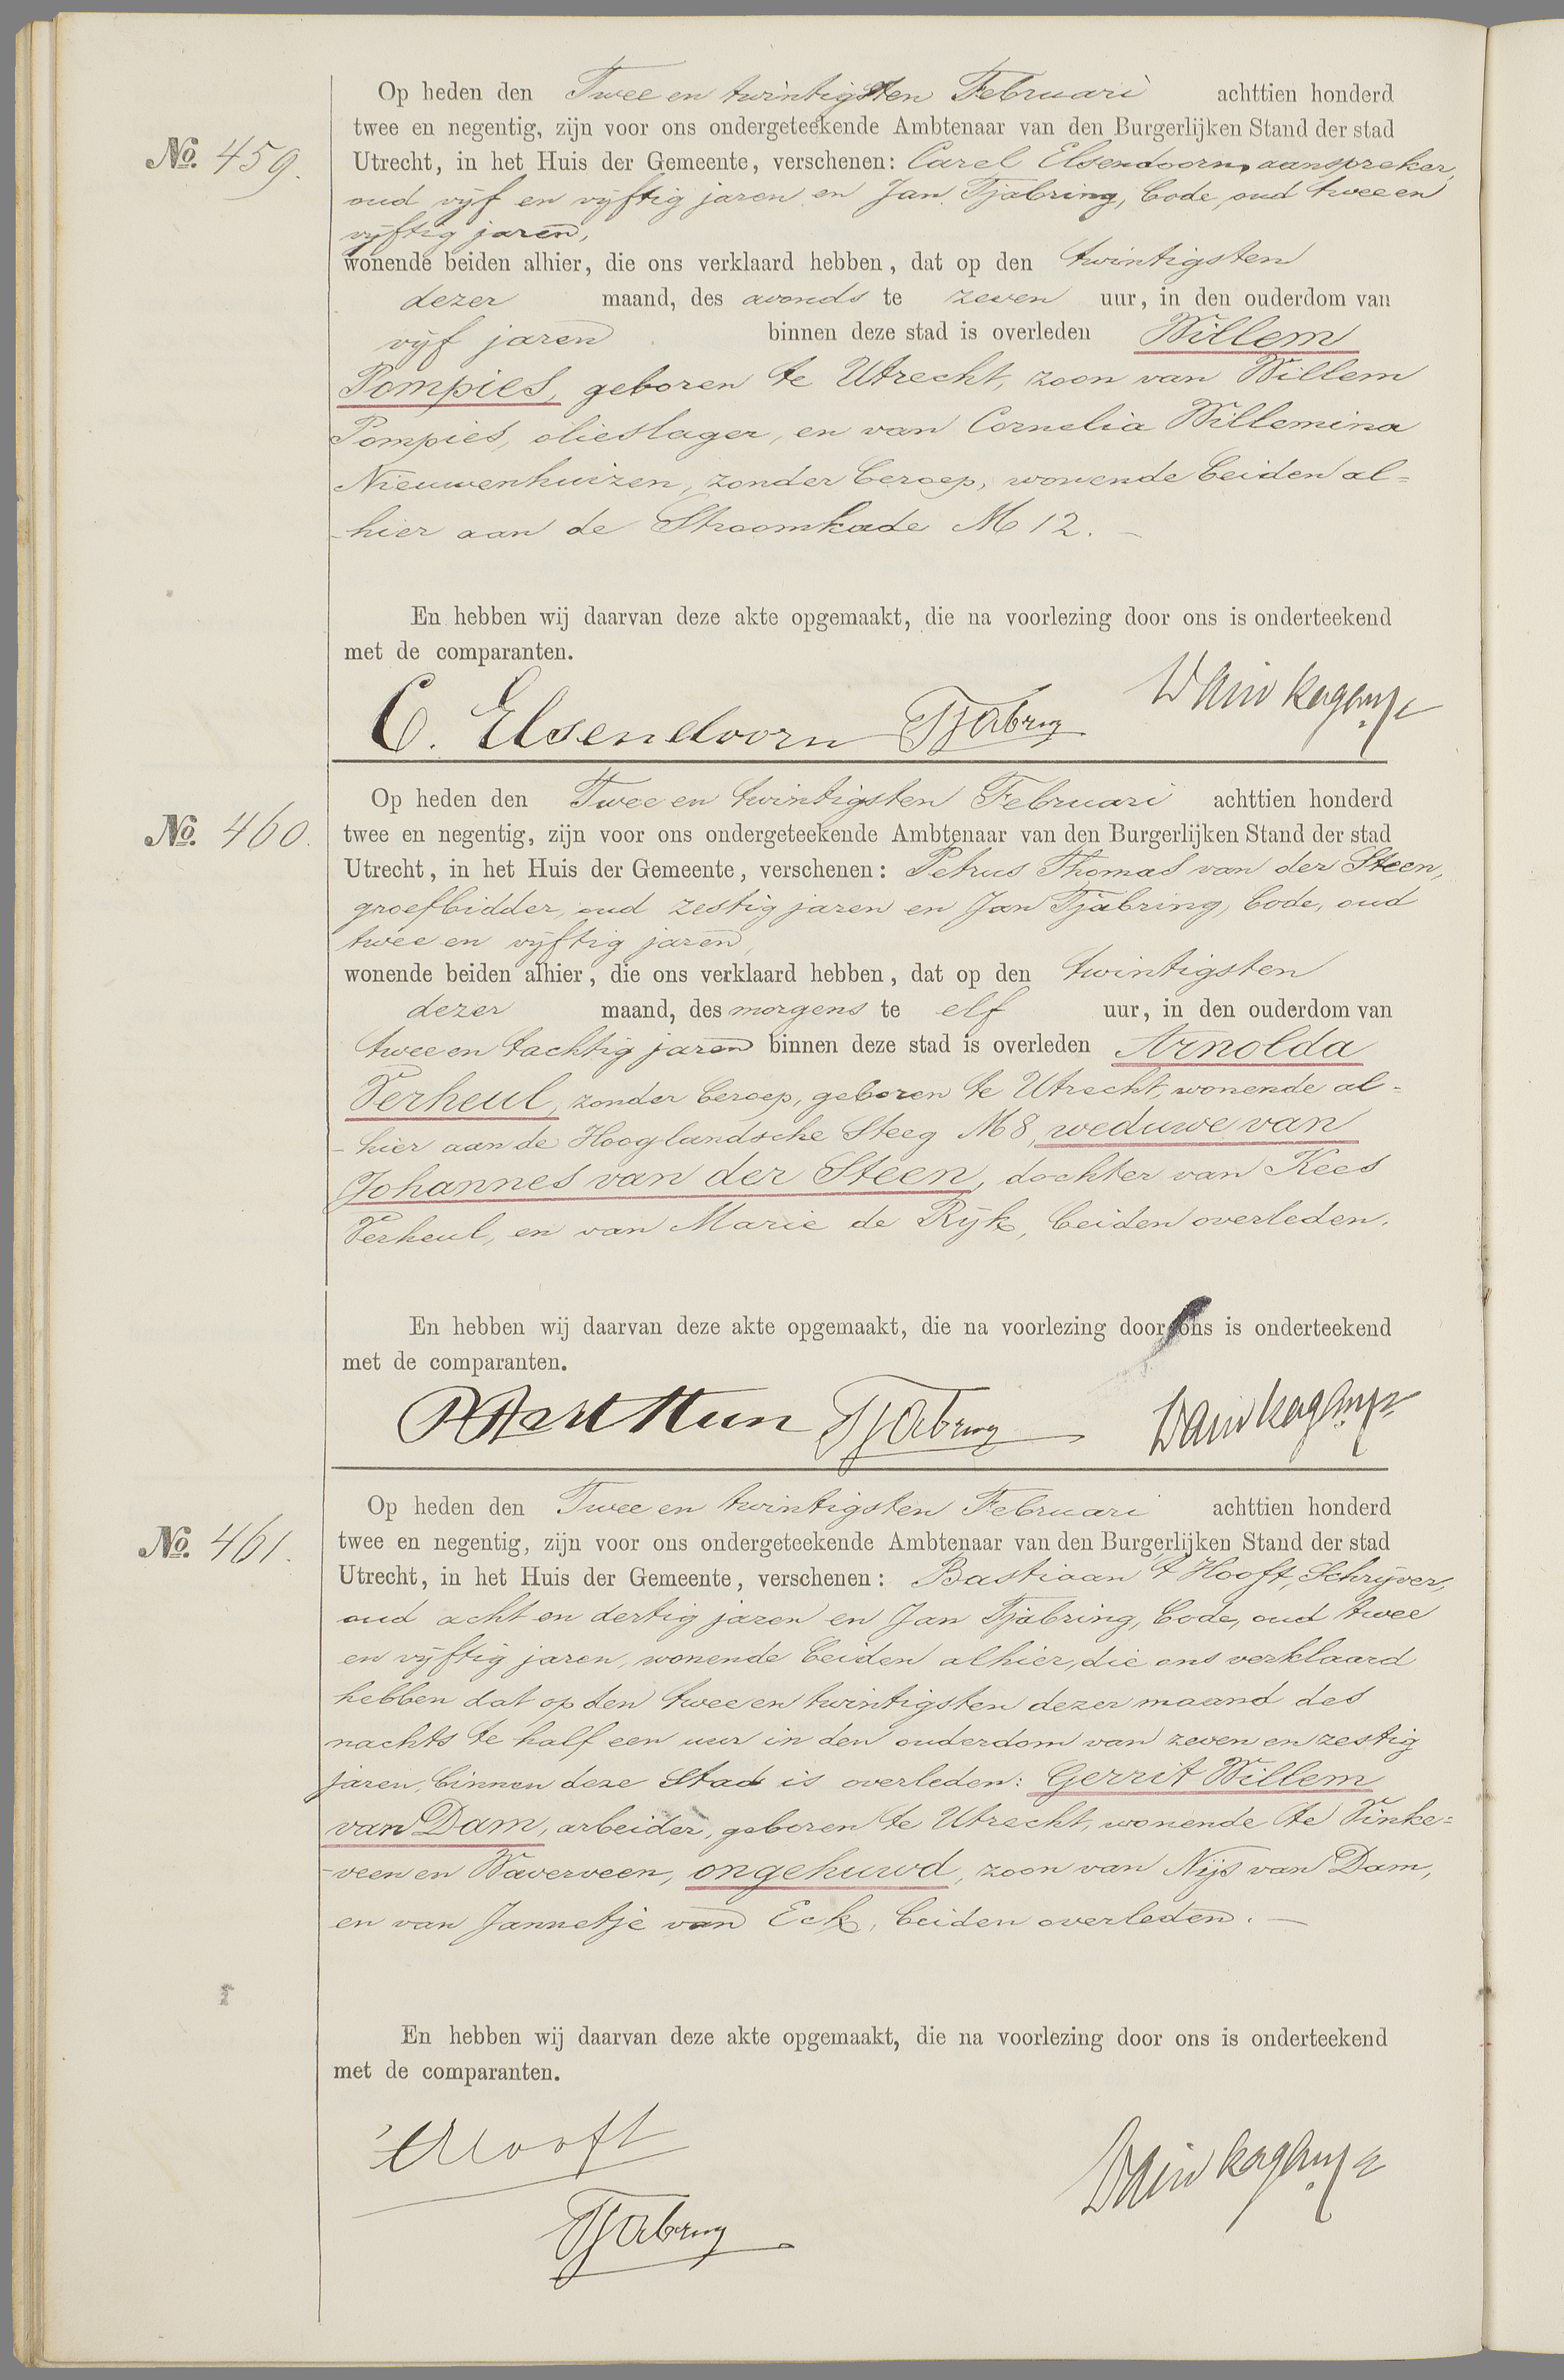 Op heden den Twee en twintigsten Februari achttien honderd
twee en negentig, zijn voor ons ondergeteekende Ambtenaar van den Burgerlijken Stand der stad
No. 459.
Utrecht, in het Huis der Gemeente, verschenen: Carel Elsendoorn, aanspreker,
oud vijf en vijftig jaren en Jan Tjabring, bode, oud twee en
vijftig jaren,
wonende beiden alhier, die ons verklaard hebben, dat op den twintigsten
dezer maand, des avonds te zeven uur, in den ouderdom van
vijf jaren binnen deze stad is overleden Willem
Pompies, geboren te Utrecht, zoon van Willem
Pompies, olieslager, en van Cornelia Willemina
Nieuwenhuizen, zonder beroep, wonende beiden al=
-hier aan de Stroomkade M 12. —
En hebben wij daarvan deze akte opgemaakt, die na voorlezing door ons is onderteekend
met de comparanten.
C. Elsendoorn Tjabring
Op heden den Twee en twintigsten Februari achttien honderd
No. 460.
twee en negentig, zijn voor ons ondergeteekende Ambtenaar van den Burgerlijken Stand der stad
Utrecht, in het Huis der Gemeente, verschenen: Petrus Thomas van der Steen,
groefbidder, oud zestig jaren en Jan Tjabring, bode, oud
twee en vijftig jaren,
wonende beiden alhier, die ons verklaard hebben, dat op den twintigsten
dezer maand, des morgens te elf uur, in den ouderdom van
twee en tachtig jaren binnen deze stad is overleden Arnolda
Verheul, zonder beroep, geboren te Utrecht, wonende al=
-hier aan de Hooglandsche Steeg M 8, weduwe van
Johannes van der Steen, dochter van Kees
Verheul, en van Marie de Rijk, beiden overleden.
En hebben wij daarvan deze akte opgemaakt, die na voorlezing door ons is onderteekend
met de comparanten.
Tjabring
Op heden den Twee en twintigsten Februari achttien honderd
No. 461.
twee en negentig, zijn voor ons ondergeteekende Ambtenaar van den Burgerlijken Stand der stad
Utrecht, in het Huis der Gemeente, verschenen: Bastiaan 't Hooft, Schrijver,
oud acht en dertig jaren en Jan Tjabring, bode, oud twee
en vijftig jaren, wonende beiden alhier, die ons verklaard
hebben dat op den twee en twintigsten dezer maand des
nachts te half een uur in den ouderdom van zeven en zestig
jaren, binnen deze Stad is overleden: Gerrit Willem
van Dam, arbeider, geboren te Utrecht, wonende te Vinke=
-veen en Waverveen, ongehuwd, zoon van Nijs van Dam,
en van Jannetje van Eck, beiden overleden. —
En hebben wij daarvan deze akte opgemaakt, die na voorlezing door ons is onderteekend
met de comparanten.
't Hooft
Tjabring